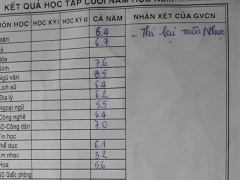 KẾT QUẢ HỌC TẬP CUỐI NĂM HỌC
MÔN HỌC HỌC KỲ I HỌC KỲ II CẢ NĂM NHẬN XÉT CỦA GVCN
6.4 - Thi lại môn Nhạc
6.7
Hóa
Sinh 7.6
Ngữ văn 8.5
Lịch sử 6.4
Địa lý 6.2
5.5
Công nghệ 6.4
GD-Công dân 7.0
Tin học
Thể dục 6.1
Âm nhạc 3.2
Họa 5.6
GD Quốc phòng